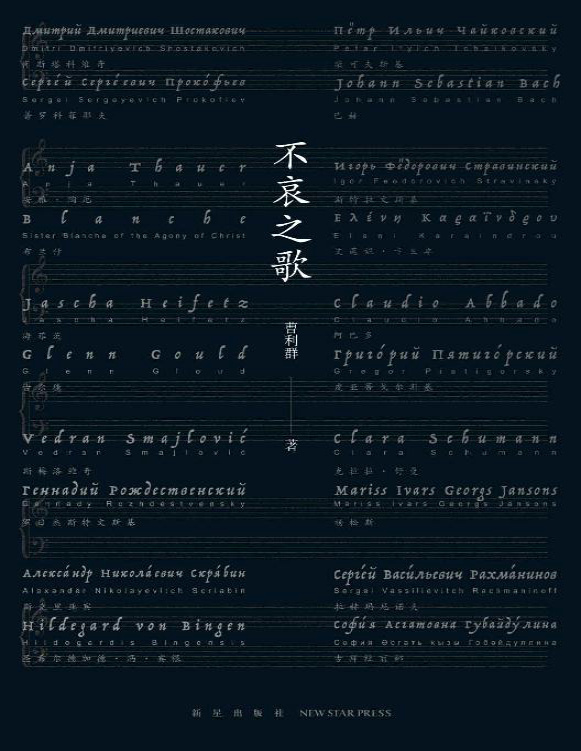 Дмитрий Дмитриевич Шостакович
Dmitri Dmitriyevich Shostakovich
肖斯塔科维奇
Серге́й Серге́евич Проко́фьев
Sergei Sergeyevich Prokofiev
普罗科菲耶夫
Anja Thauer
Anja Thauer
安雅·陶尔
Blanche
Sister Blanche of the Agony of Christ
布兰什
Jascha Heifetz
Jascha Heifetz
海菲茨
Glenn Gould
Glenn Gloud
古尔德
Vedran Smajlović
Vedran Smajlović
斯梅洛维奇
Геннадий Рождественский
Gennady Rozhdestvensky
罗日杰斯特文斯基
Алекса́ндр Никола́евич Скря́бин
Alexander Nikolayevitch Scriabin
斯克里亚宾
Hildegard von Bingen
Hildegardis Bingensis
圣希尔德加德·冯·宾根
不哀之歌
曹利群
著
Пётр Ильич Чайковский
Peter Ilyich Tchaikovsky
柴可夫斯基
Johann Sebastian Bach
Johann Sebastian Bach
巴赫
Игорь Фёдорович Стравинский
Igor Feodorovich Stravinsky
斯特拉文斯基
Ελένη Καραΐνδρου
Eleni Karaindrou
Claudio Abbado
Claudio Abbado
阿巴多
Григо́рий Пятиго́рский
Gregor Piatigorsky
皮亚蒂戈尔斯基
Clara Schumann
Clara Schumann
克拉拉·舒曼
Mariss Ivars Georgs Jansons
Mariss Ivars Georgs Jansons
杨松斯
Серге́й Васи́льевич Рахма́нинов
Sergei Vassilievitch Rachmaninoff
拉赫玛尼诺夫
Софи́я Асгатовна Губайду́лина
София Әсгать кызы Гобәйдуллина
古拜杜丽娜
新星出版社 NEW STAR PRESS